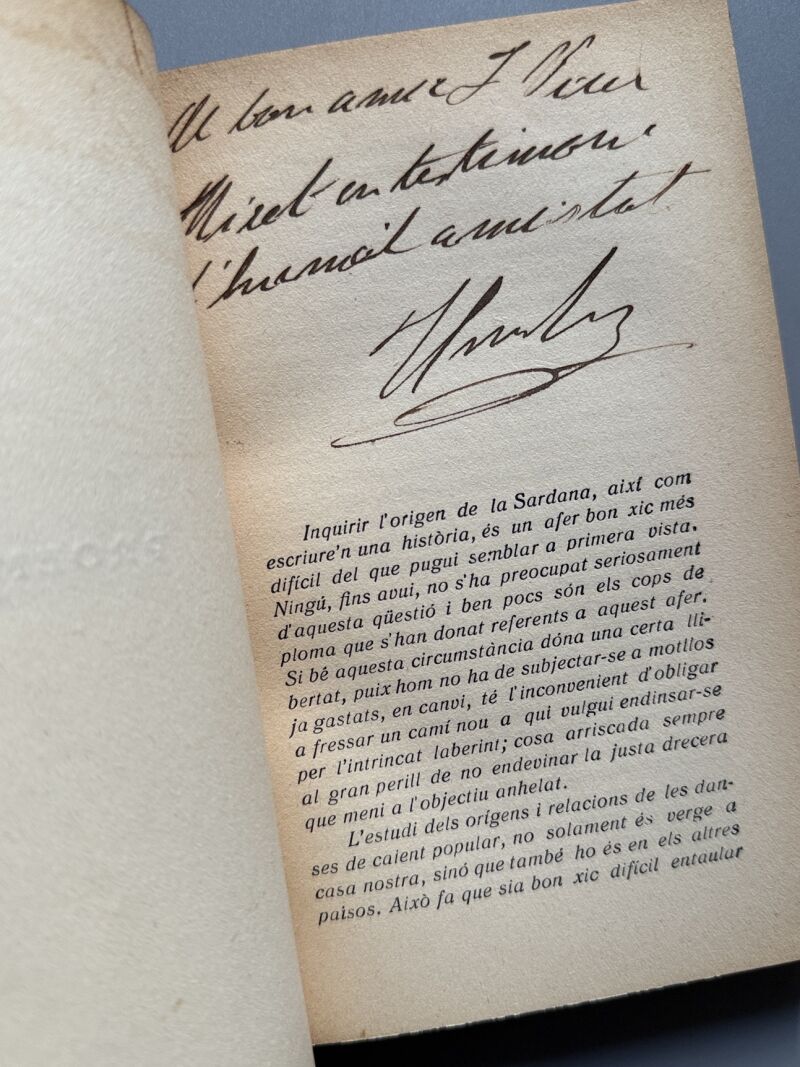 bon amic J
Miret en testimoni
d'humil amistat
Inquirir l'origen de la Sardana, així com
escriure'n una història, és un afer bon xic més
difícil del que pugui semblar a primera vista.
Ningú, fins avui, no s'ha preocupat seriosament
d'aquesta qüestió i ben pocs són els cops de
ploma que s'han donat referents a aquest afer.
Si bé aquesta circumstància dóna una certa lli-
bertat, puix hom no ha de subjectar-se a motllos
ja gastats, en canvi, té l'inconvenient d'obligar
a fressar un camí nou a qui vulgui endinsar-se
per l'intrincat laberint; cosa arriscada sempre
al gran perill de no endevinar la justa drecera
que meni a l'objectiu anhelat.
L'estudi dels orígens i relacions de les dan-
ses de caient popular, no solament és verge a
casa nostra, sinó que també ho és en els altres
països. Això fa que sia bon xic difícil entaular